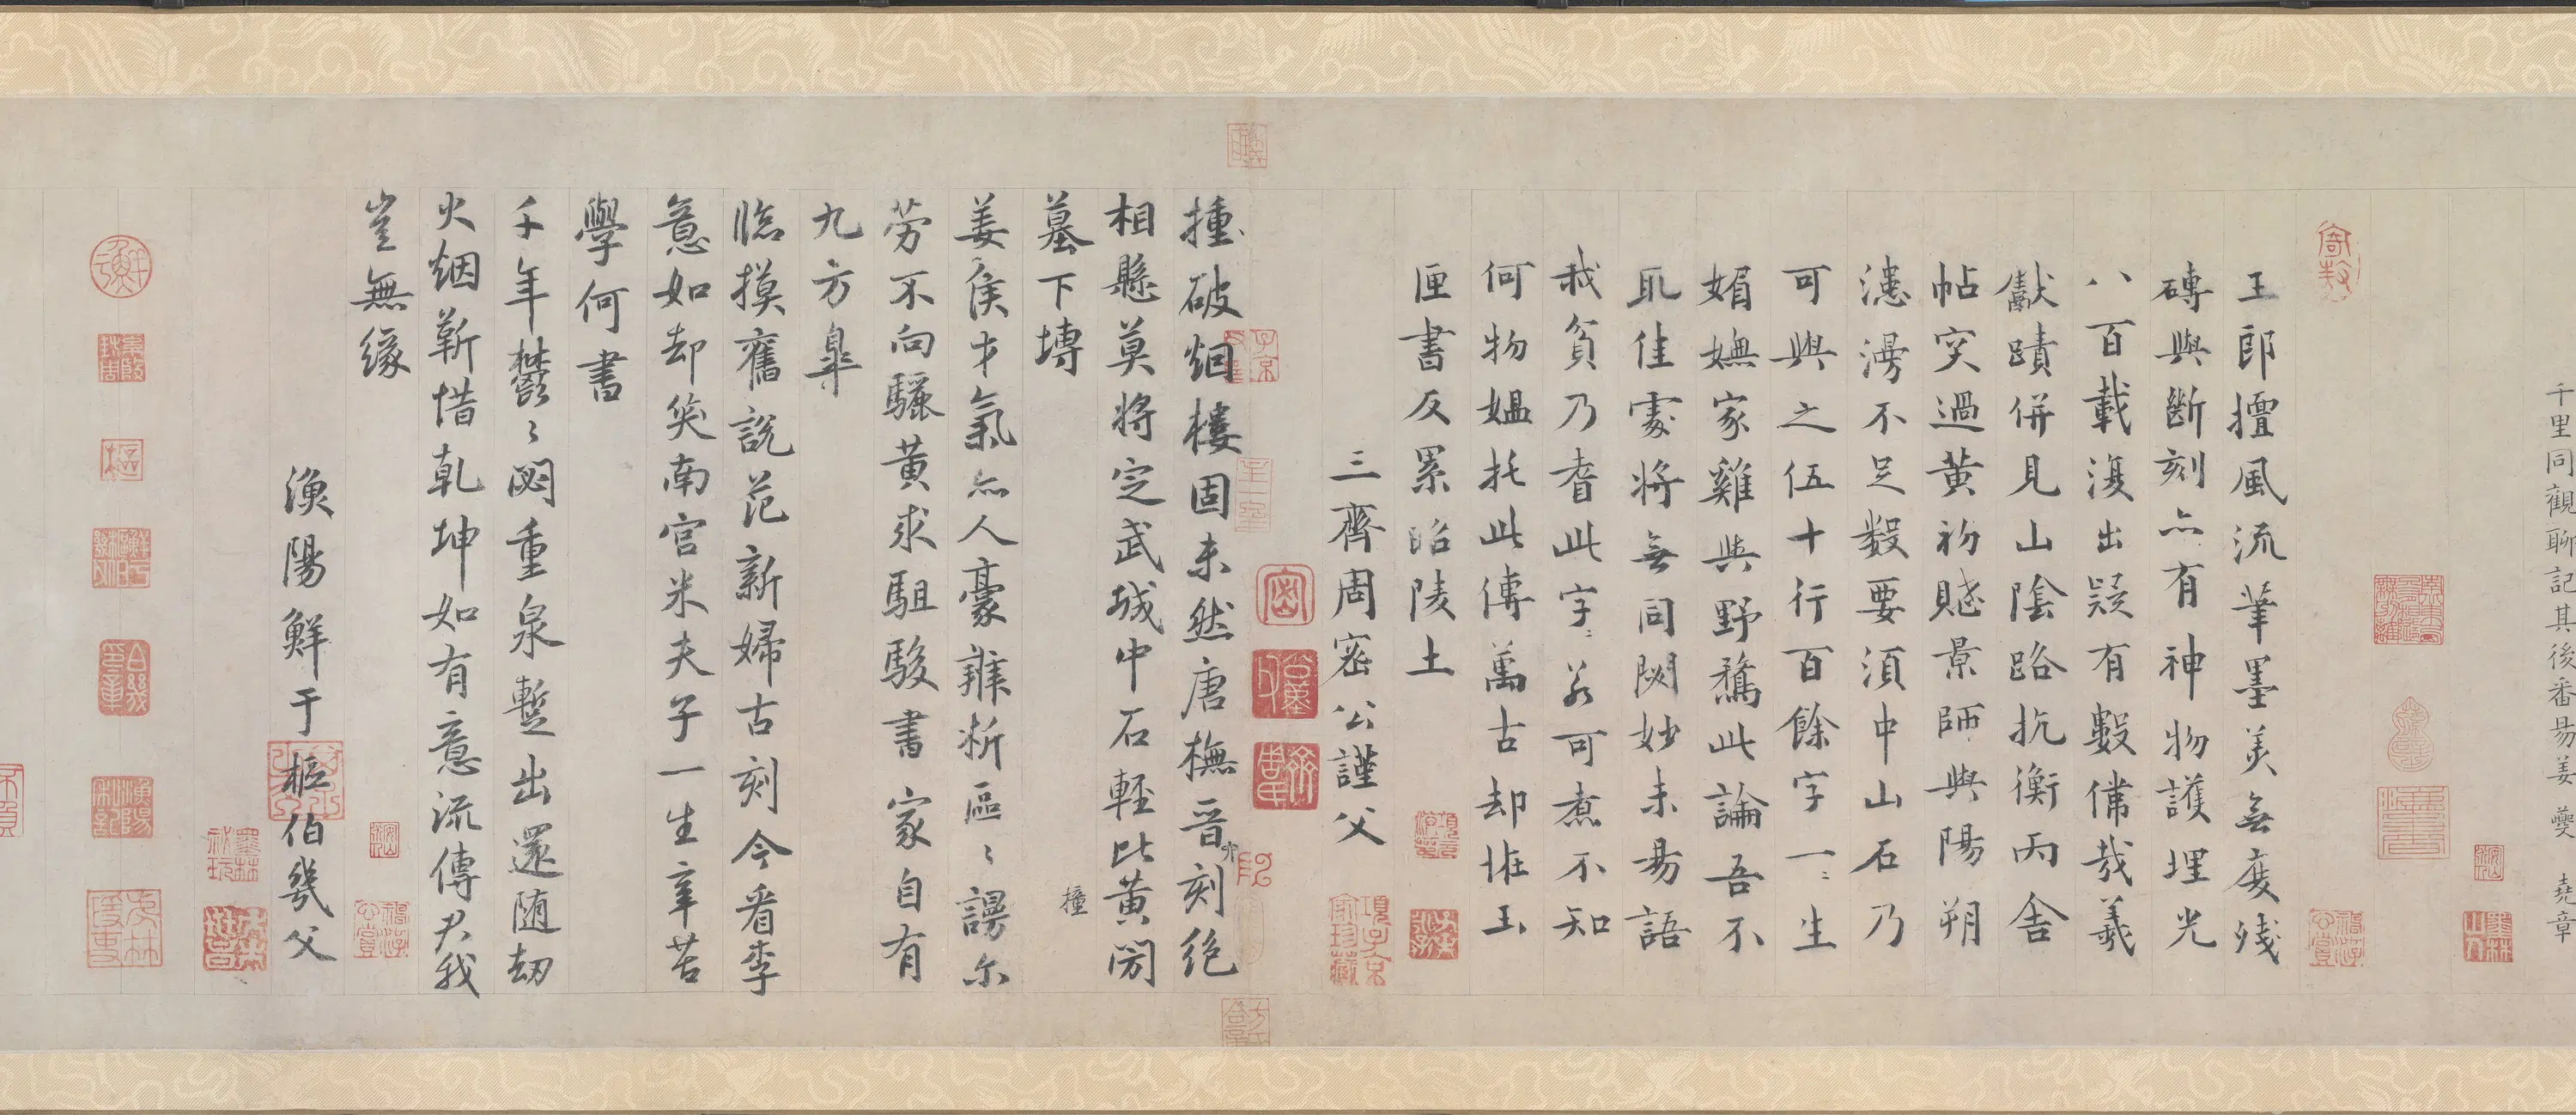 千里同觀聊記其後番昜姜夔 堯章
王郎擅風流筆墨美無度殘
磚與斷刻亦有神物護埋光
八百載復出疑有數備哉羲
獻蹟併見山陰路抗衡丙舍
帖突過黃初賤景師與陽朔
漶漫不足數要須中山石乃
可與之伍十行百餘字一〻生
媚嫵家雞與野鶩此論吾不
取佳處將無同闕妙未易語
我貧乃耆此字〻若可煮不知
何物媼托此傳萬古却惟玉
匣書反累昭陵土
三齊周密公謹父
撞破烟樓固未然唐橅晉刻絕
相懸莫將定武城中石輕比黃閍
墓下塼
撞
姜侯才氣亦人豪辯析區〻謾尔
勞不向驪黃求駔駿書家自有
九方臯
臨摸舊說范新婦古刻今看李
意如却笑南宮米夫子一生辛苦
學何書
千年鬱〻閟重泉暫出還隨劫
火烟靳惜乹坤如有意流傳君我
豈無緣
漁陽鮮于樞伯幾父